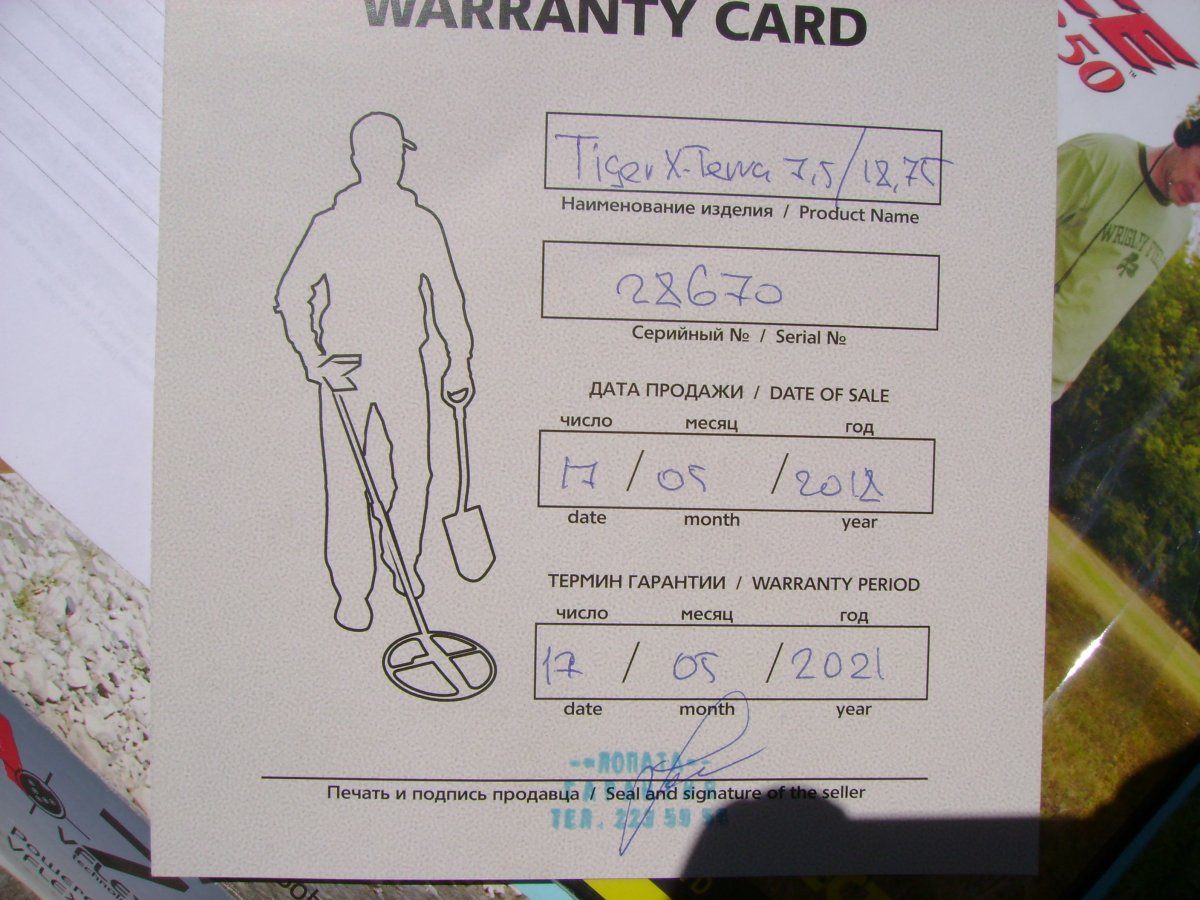 WARRANTY CARD
Tiger X-Terra 7,5/18,75
Наименование изделия / Product Name
28670
Серийный № / Serial №
ДАТА ПРОДАЖИ / DATE OF SALE
число месяц год
17 / 05 / 2018
date month year
ТЕРМИН ГАРАНТИИ / WARRANTY PERIOD
число месяц год
17 / 05 / 2021
date month year
ЛОПАТА
Печать и подпись продавца / Seal and signature of the seller
ТЕЛ. 223 59
CE
50
™
WRIGLEY
VFLEX
Technology
Power
VFLEX